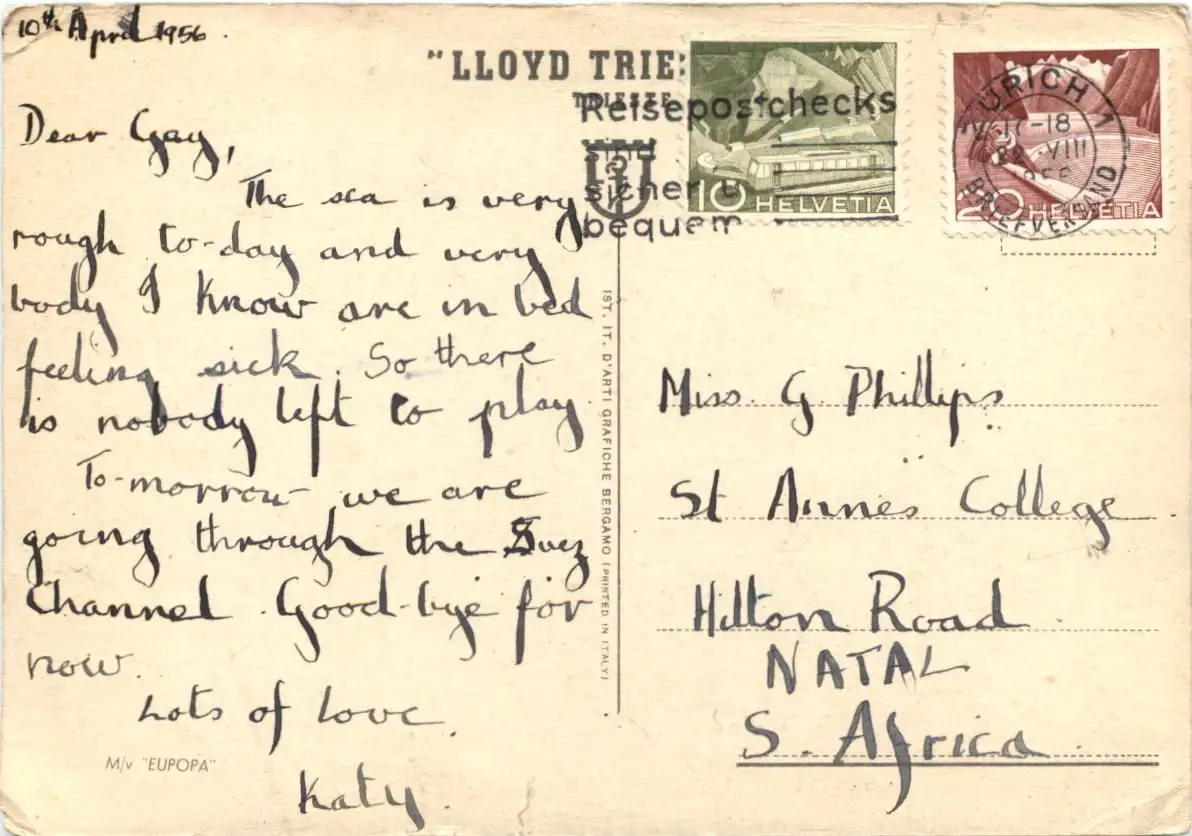 10th April 1956.
Dear Gay,
The sea is very
rough to-day and very
body I know are in bed
feeling sick. So there
is nobody left to play.
To-morrow we are
going through the Suez
Channel. Good-bye for
now.
Lots of love.
Katy.
M/v "EUPOPA"
IST. IT. D'ARTI GRAFICHE BERGAMO (PRINTED IN ITALY)
"LLOYD TRIE
TRIESTE
Reisepostchecks
sind
sicher u
bequem
10 HELVETIA
20 HELVETIA
ZÜRICH 1
17-18
VIII
BRIEFVERSAND
Miss. G. Phillips
St Annes College
Hilton Road
NATAL
S. Africa.